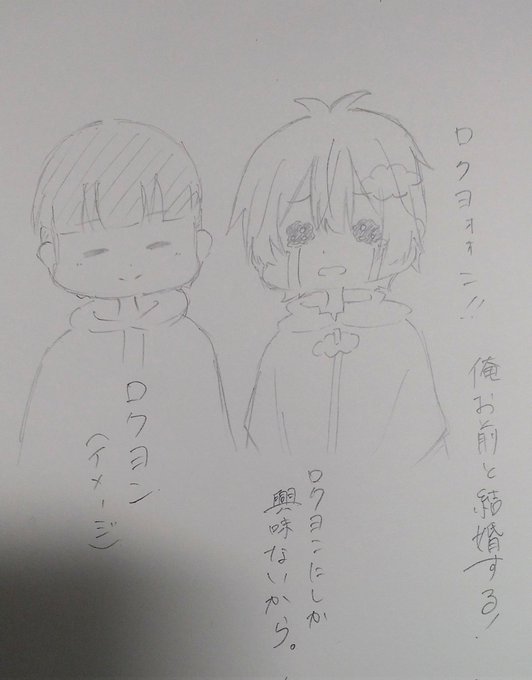 ロクヨォォン!!
俺お前と結婚する!
ロクヨンにしか
興味ないから。
ロクヨン
(イメージ)